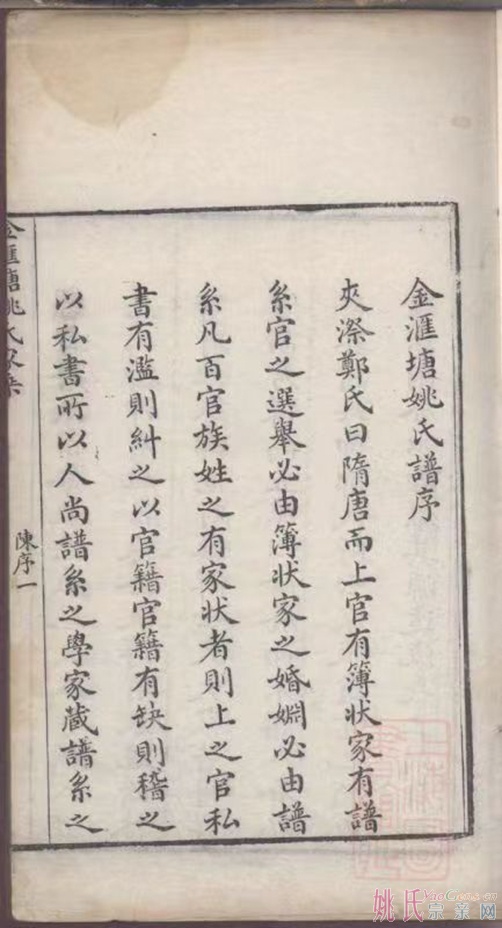 金滙塘姚氏譜序
夾漈鄭氏曰隋唐而上官有簿狀家有譜
系官之選舉必由簿狀家之婚婣必由譜
系凡百官族姓之有家狀者則上之官私
書有濫則糾之以官籍官籍有缺則稽之
以私書所以人尚譜系之學家藏譜系之
金滙塘姚氏家乘
陳序一
姚氏宗亲网
YaoGens.cn